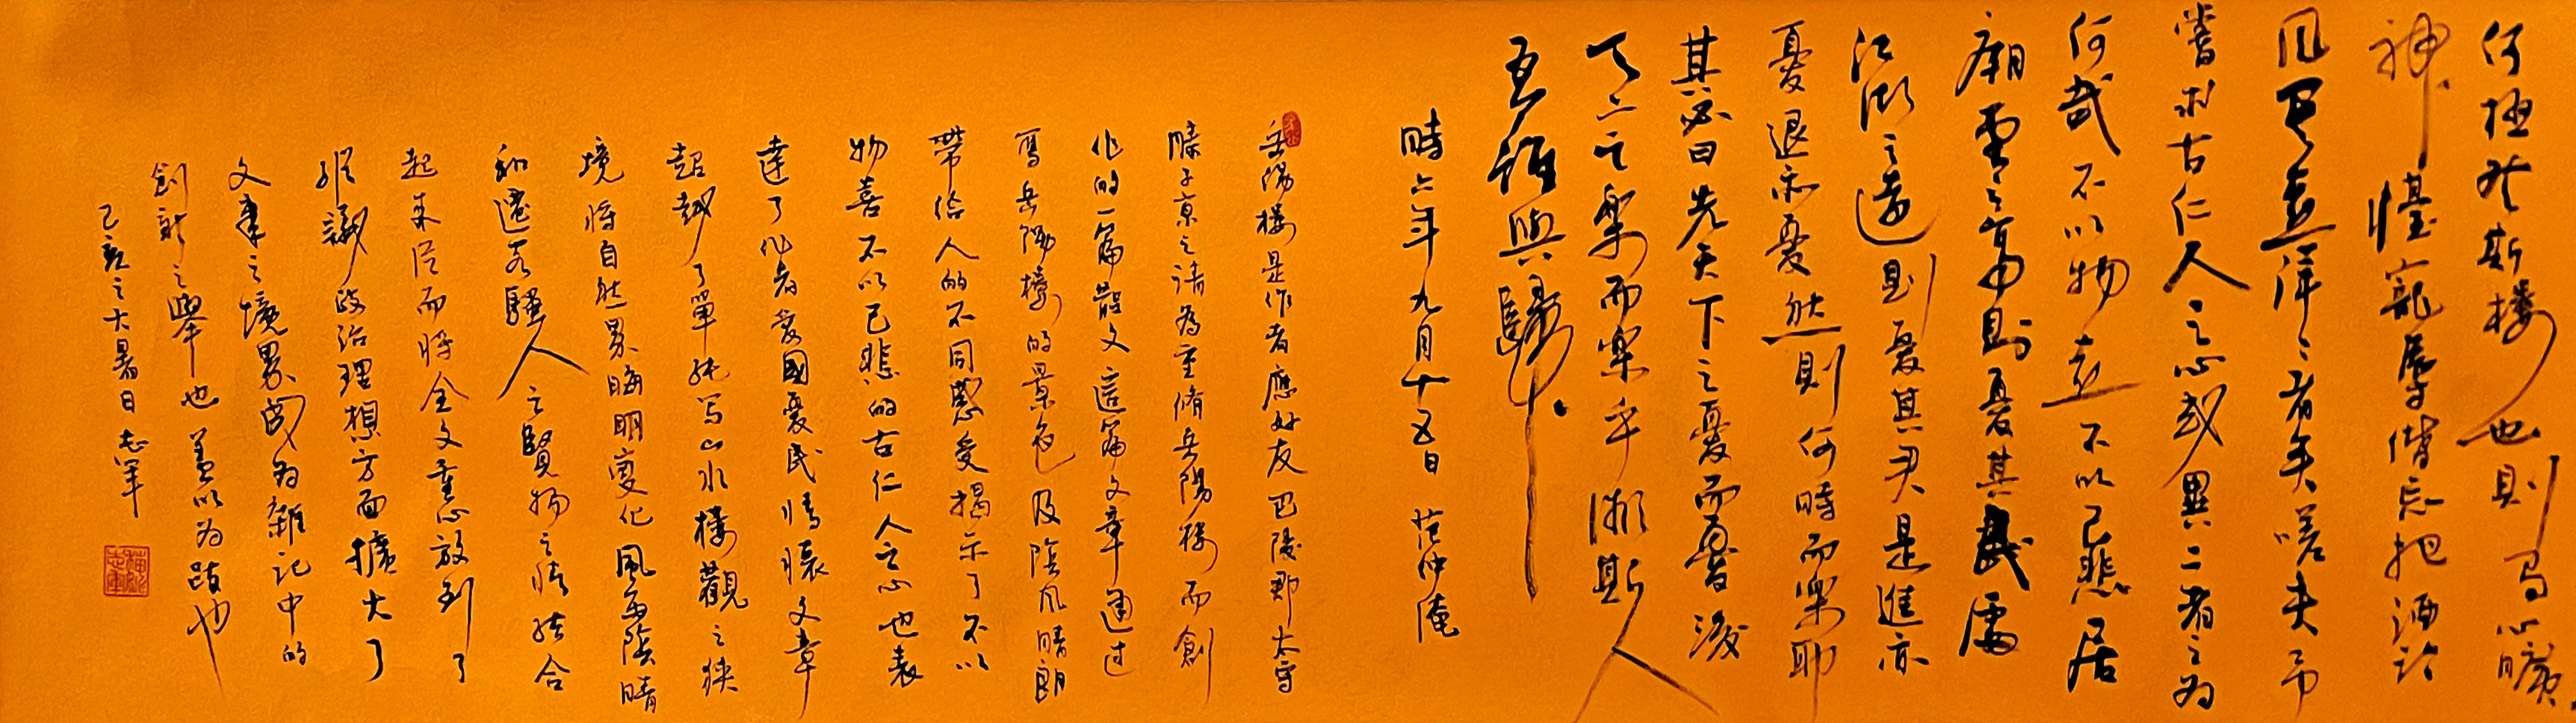 何極登斯楼也則有心曠
神怡寵辱偕忘把酒临
风其喜洋々者矣嗟夫予
嘗求古仁人之心或異二者之为
何哉不以物喜不以己悲居
廟堂之高則憂其民處
江湖之遠則憂其君是進亦
憂退亦憂然則何時而樂耶
其必曰先天下之憂而憂後
天下之樂而樂乎微斯人
吾誰與歸
時六年九月十五日 范仲淹
岳陽楼是作者應好友巴陵郡太守
滕子京之請為重脩岳陽楼而創
作的一篇散文這篇文章通过
寫岳陽樓的景色及陰风晴朗
帶给人的不同感受揭示了不以
物喜不以己悲的古仁人之心也表
達了作者愛國愛民情懷文章
超越了單純写山水樓觀之狹
境將自然界晦明變化風雨陰晴
和遷客騷人之覽物之情结合
起来從而將全文重心放到了
縱議政治理想方面擴大了
文章之境界成为雜记中的
創新之舉也盖以为跋也
己亥之大暑日志军